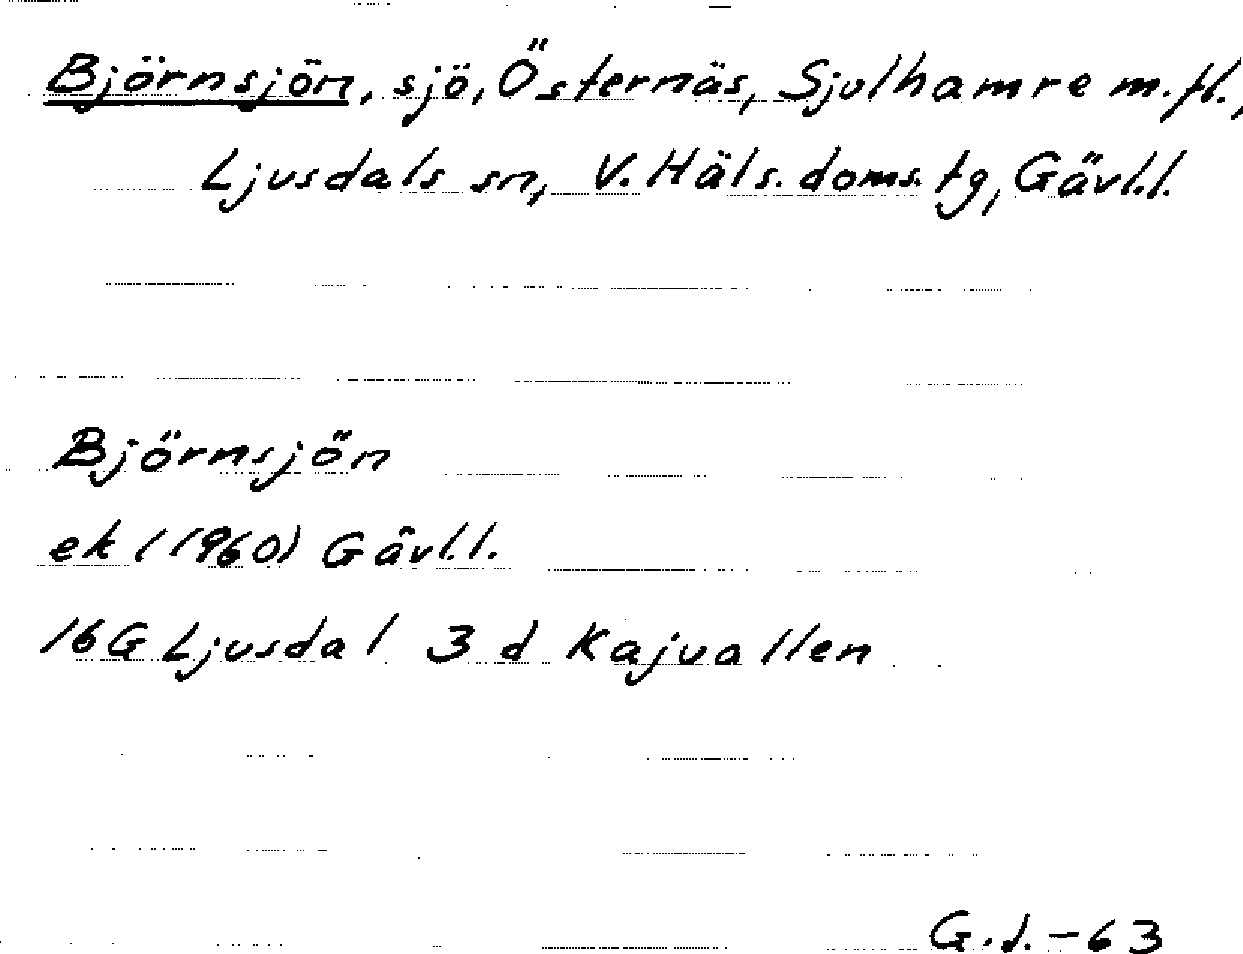 Björnsjön, sjö, Östernäs, Sjulhamre m.fl.,
Ljusdals sn, V. Häls. doms. tg, Gävl.l.
Björnsjön
ek (1960) Gävl.l.
16G Ljusdal 3 d Kajvallen
G.d.-63